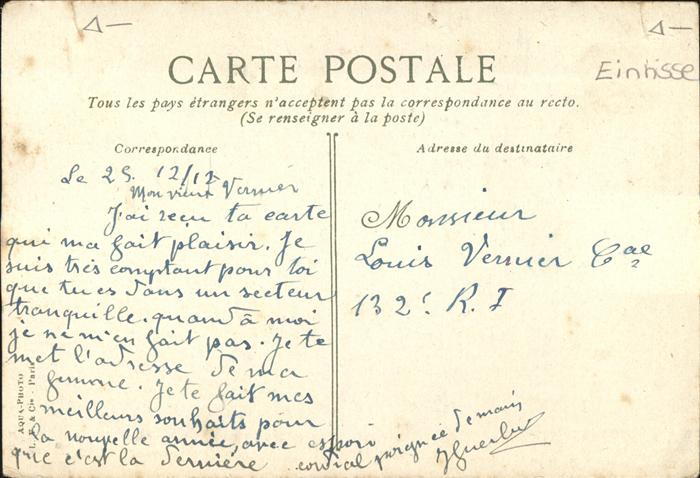 Eintisse
CARTE POSTALE
Tous les pays étrangers n'acceptent pas la correspondance au recto.
(Se renseigner à la poste)
Correspondance
Adresse du destinataire
Le 25. 12/17
Mon vieux Vernier
J'ai reçu ta carte
qui ma fait plaisir. Je
suis très comptant pour toi
que tu es dans un secteur
tranquille. quand à moi
je ne m'en fait pas. Je te
met l'adresse de ma
femme. Je te fait mes
meilleurs souhaits pour
la nouvelle année, avec espoir
que c'est la dernière
cordial poignée de main
Monsieur
Louis Vernier Cal
132e R. I
AQUA-PHOTO
& Cie - Paris